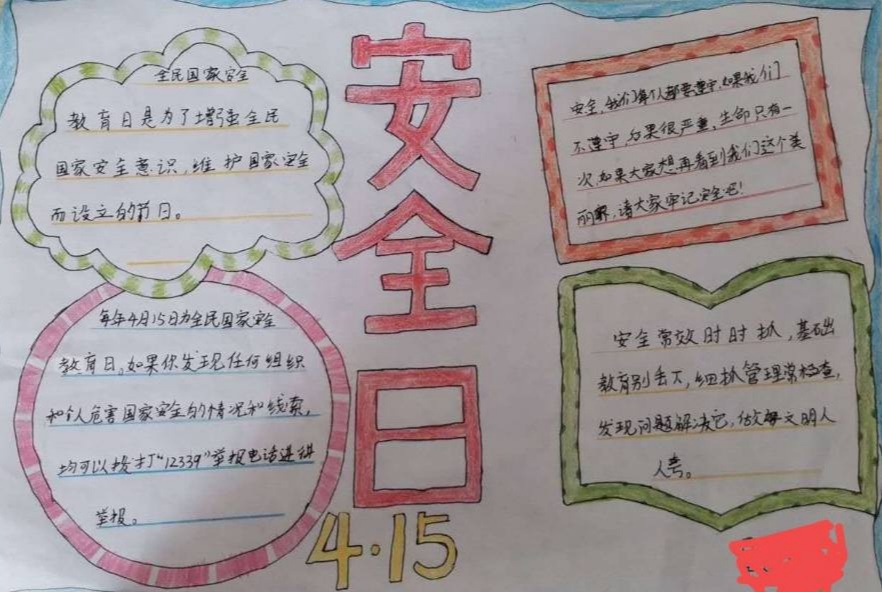 全民国家安全
教育日是为了增强全民
国家安全意识,维护国家安全
而设立的节日。
每年4月15日为全民国家安全
教育日。如果你发现任何组织
和个人危害国家安全的情况和线索,
均可以拨打“12339”举报电话进行
举报。
安全日
4·15
安全,我们每个人都要遵守,如果我们
不遵守,后果很严重,生命只有一
次,如果大家想再看到我们这个美
丽的世界,请大家牢记安全吧!
安全常效时时抓,基础
教育别丢下,细抓管理常检查,
发现问题解决它,做文明人
人夸。